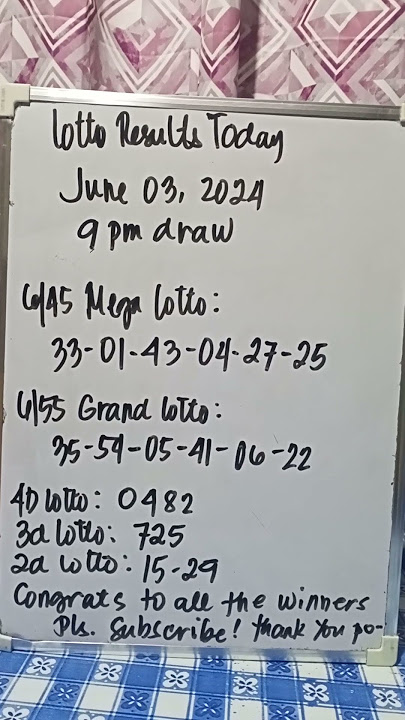 Lotto Results Today
June 03, 2024
9 pm draw
6/45 Mega Lotto:
33-01-43-04-27-25
6/55 Grand Lotto:
35-54-05-41-06-22
4D Lotto: 0482
3d Lotto: 725
2d Lotto: 15-29
Congrats to all the winners
Pls. Subscribe! Thank you po-